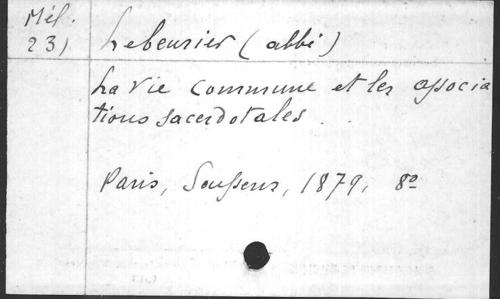 Mél.
231
Lebeurier (abbé)
La Vie Commune et les associa
tions sacerdotales.
Paris, Soussens, 1879, 8º